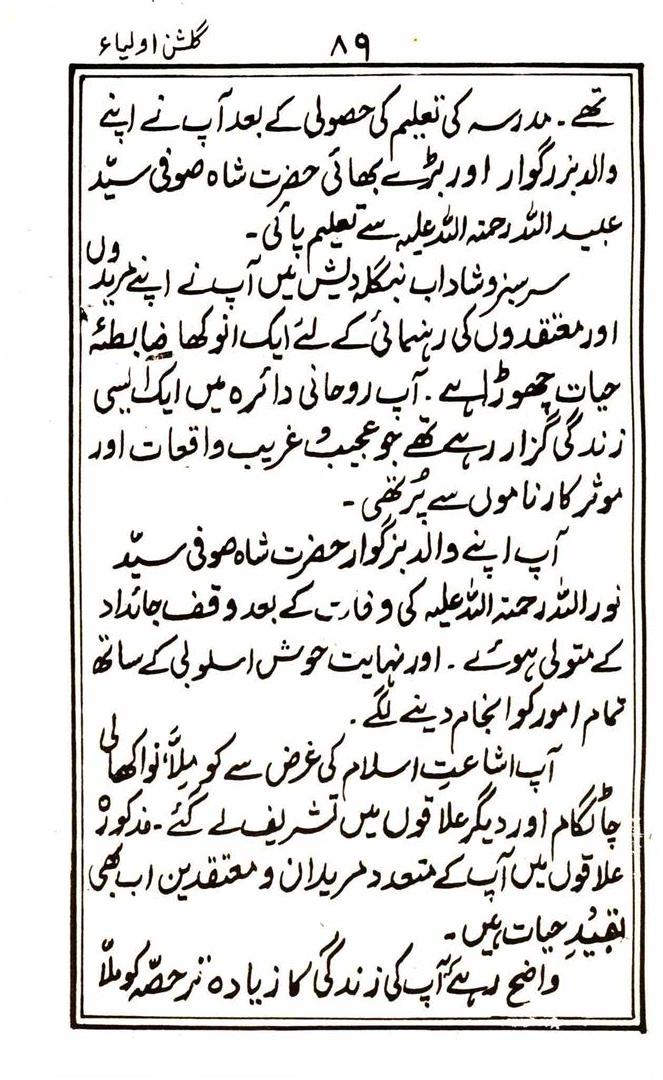 گلشن اولیاء
۸۹
تھے۔ مدرسہ کی تعلیم کی حصولی کے بعد آپ نے اپنے
والد بزرگوار اور بڑے بھائی حضرت شاہ صوفی سیّد
عبید اللہ رحمتہ اللہ علیہ سے تعلیم پائی۔
سرسبز و شاداب بنگلہ دیش میں آپ نے اپنے مریدوں
اور معتقدوں کی رہنمائی کے لئے ایک انوکھا ضابطئہ
حیات چھوڑا ہے۔ آپ روحانی دائرہ میں ایک ایسی
زندگی گزار رہے تھے جو عجیب و غریب واقعات اور
موثر کارناموں سے پُر تھی۔
آپ اپنے والد بزگوار حضرت شاہ صوفی سیّد
نور اللہ رحمتہ اللہ علیہ کی وفات کے بعد وقف جائداد
کے متولی ہوئے۔ اور نہایت خوش اسلوبی کے ساتھ
تمام امور کو انجام دینے لگے۔
آپ اشاعتِ اسلام کی غرض سے کومِلّا، نواکھالی
چاٹگام اور دیگر علاقوں میں تشریف لے گئے۔ مذکورہ
علاقوں میں آپ کے متعدد مریدان و معتقدین اب بھی
بقیدِ حیات ہیں۔
واضح رہے کہ آپ کی زندگی کا زیادہ تر حصّہ کوملّا